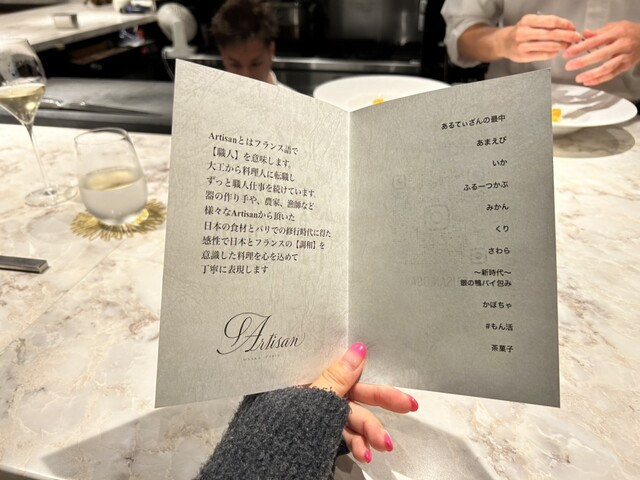 Artisanとはフランス語で
【職人】を意味します。
大工から料理人に転職し
ずっと職人仕事を続けています。
器の作り手や、農家、漁師など
様々なArtisanから頂いた
日本の食材とパリでの修行時代に得た
感性で日本とフランスの【調和】を
意識した料理を心を込めて
丁寧に表現します
Artisan
あるてぃざんの最中
あまえび
いか
ふるーつかぶ
みかん
くり
さわら
〜新時代〜
銀の鴨パイ包み
かぼちゃ
#もん活
茶菓子